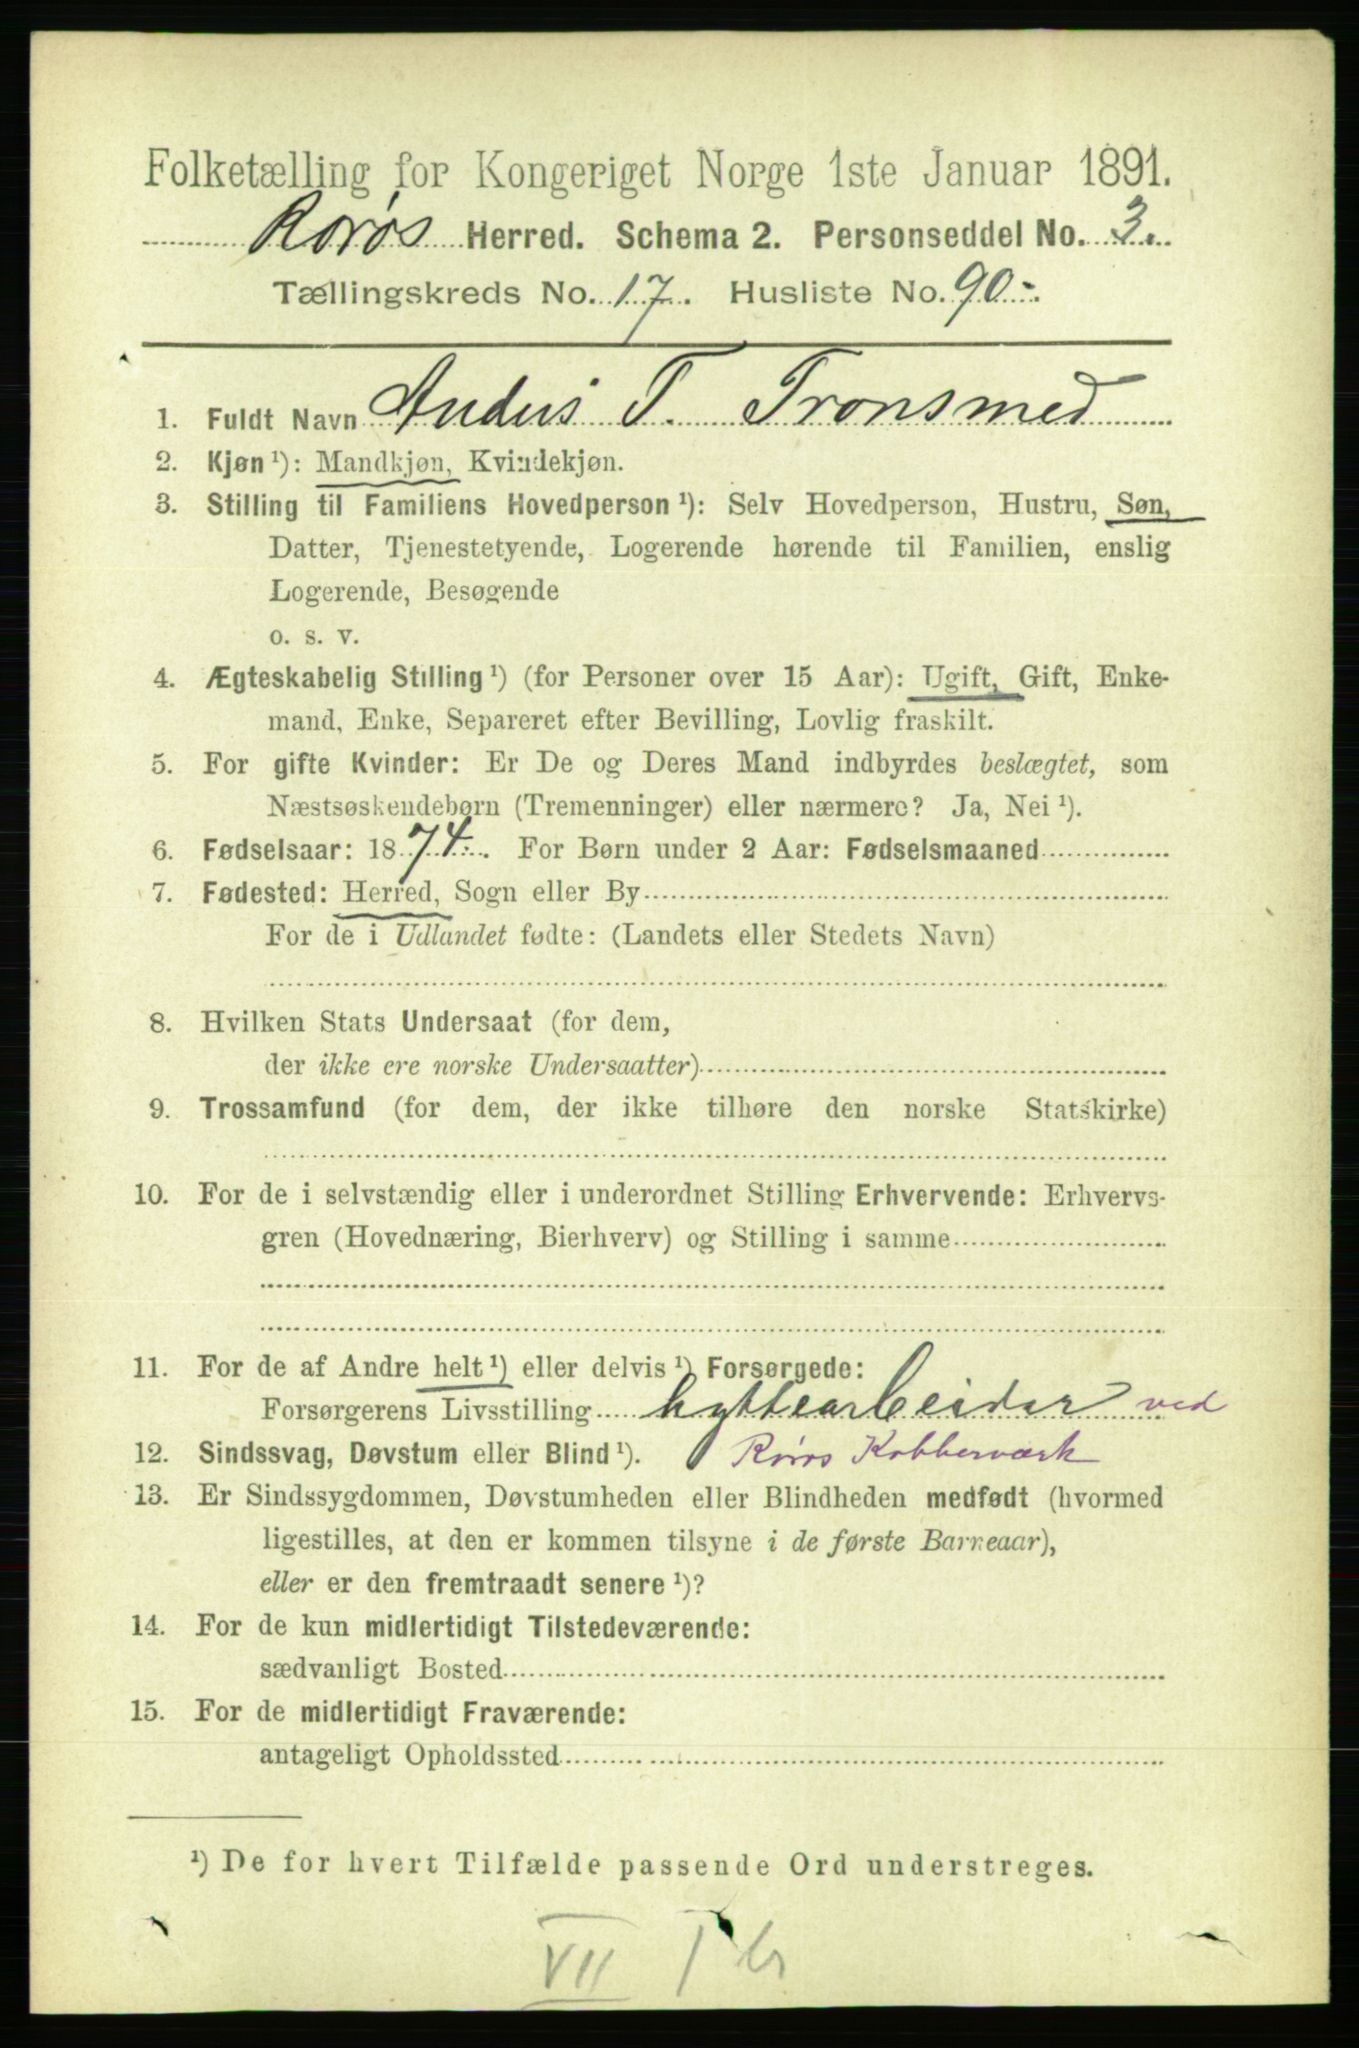 Folketælling for Kongeriget Norge 1ste Januar 1891.
Rørøs Herred. Schema 2. Personseddel No. 3.
Tællingskreds No. 17. Husliste No. 90.
1. Fuldt Navn Anders T. Tronsmed
2. Kjøn ¹): Mandkjøn, Kvindekjøn.
3. Stilling til Familiens Hovedperson ¹): Selv Hovedperson, Hustru, Søn,
Datter, Tjenestetyende, Logerende hørende til Familien, enslig
Logerende, Besøgende
o. s. v.
4. Ægteskabelig Stilling ¹) (for Personer over 15 Aar): Ugift, Gift, Enke-
mand, Enke, Separeret efter Bevilling, Lovlig fraskilt.
5. For gifte Kvinder: Er De og Deres Mand indbyrdes beslægtet, som
Næstsøskendebørn (Tremenninger) eller nærmere? Ja, Nei ¹).
6. Fødselsaar: 1874. For Børn under 2 Aar: Fødselsmaaned
7. Fødested: Herred, Sogn eller By
For de i Udlandet fødte: (Landets eller Stedets Navn)
8. Hvilken Stats Undersaat (for dem,
der ikke ere norske Undersaatter)
9. Trossamfund (for dem, der ikke tilhøre den norske Statskirke)
10. For de i selvstændig eller i underordnet Stilling Erhvervende: Erhvervs-
gren (Hovednæring, Bierhverv) og Stilling i samme
11. For de af Andre helt ¹) eller delvis ¹) Forsørgede:
Forsørgerens Livsstilling hyttearbeider ved
12. Sindssvag, Døvstum eller Blind ¹). Røros Kobberværk
13. Er Sindssygdommen, Døvstumheden eller Blindheden medfødt (hvormed
ligestilles, at den er kommen tilsyne i de første Barneaar),
eller er den fremtraadt senere ¹)?
14. For de kun midlertidigt Tilstedeværende:
sædvanligt Bosted
15. For de midlertidigt Fraværende:
antageligt Opholdssted
¹) De for hvert Tilfælde passende Ord understreges.
VII